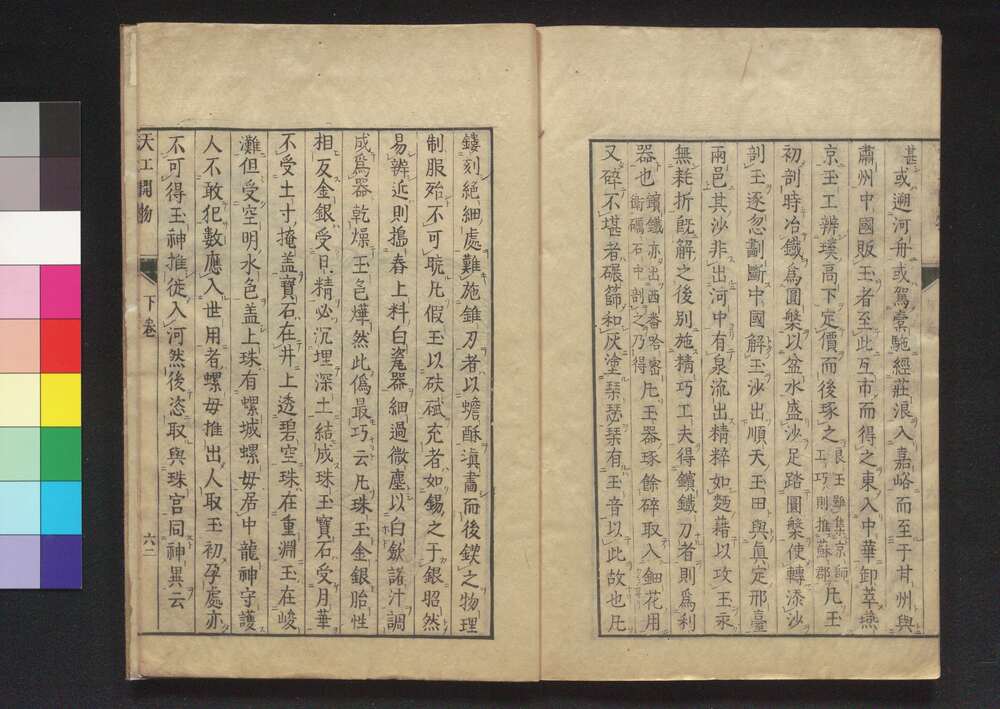 甚或遡河舟或駕橐駞經莊浪入嘉峪而至于甘州與
肅州中國販玉者至此互市而得之東入中華卸萃燕
京玉工辨璞高下定價而後琢之良玉雖集京師
工巧則推蘇郡凡玉
初剖時冶鐵爲圓槃以盆水盛沙足踏圓槃使轉添沙
剖玉逐忽劃斷中國解玉沙出順天玉田與真定邢臺
兩邑其沙非出河中有泉流出精粹如麪藉以攻玉永
無耗折旣解之後別施精巧工夫得鑌鐵刀者則爲利
器也鑌鐵亦出西番哈密
衛礪石中剖之乃得凡玉器琢餘碎取入鈿花用
又碎不堪者碾篩和灰塗琹瑟琹有玉音以此故也凡
鏤刻絶細處難施錐刀者以蟾酥塡畵而後鍥之物理
制服殆不可曉凡假玉以砆碔充者如錫之于銀昭然
易辨近則搗舂上料白瓷器細過微塵以白歛諸汁調
成爲器乾燥玉色燁然此僞最巧云凡珠玉金銀胎性
相反金銀受日精必沉埋深土結成珠玉寳石受月華
不受土寸掩盖寳石在井上透碧空珠在重淵玉在峻
灘但受空明水色盖上珠有螺城螺母居中龍神守護
人不敢犯數應入世用者螺母推出人取玉初孕處亦
不可得玉神推徙入河然後恣取與珠宫同神異云
天工開物
下卷
六二